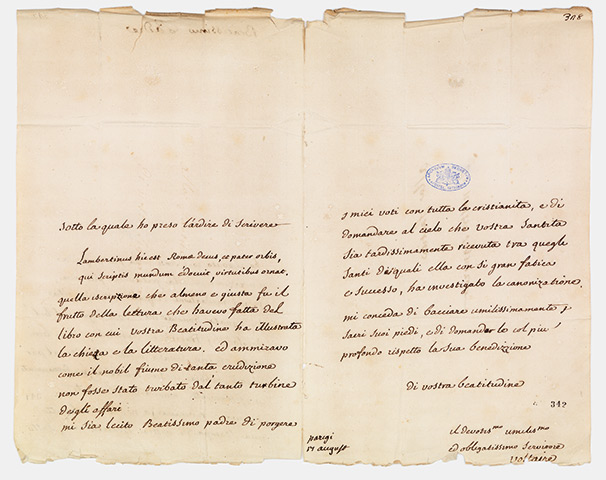 308
sotto la quale ho preso l'ardire di scrivere
Lambertinus hic est Romæ decus, et pater orbis,
qui scriptis mundum edocuit, virtutibus ornat,
quella iscrizione che almeno e giusta fu il
frutto della lettura che havevo fatta del
libro con cui vostra Beatitudine ha illustrata
la chieza e la litteratura. ed ammiravo
come il nobil fiume di tanta erudizione
non fosse stato turbato dal tanto turbine
degli affari
mi sia lecito Beatissimo padre di porgere
i miei voti con tutta la cristianita, e di
domandare al cielo che vostra santita
sia tardissimamente ricevuta tra quegli
santi de quali ella con si gran fatica
e successo, ha investigato la canonizatione.
mi conceda di bacciare umilissimamente i
sacri suoi piedi, e di domandar le col piu
profondo rispetto la sua benedizzione
di vostra beatitudine
342
parigi
17 august
il devotis.mo umilis.mo
ed obligatissimo servitore
voltaire